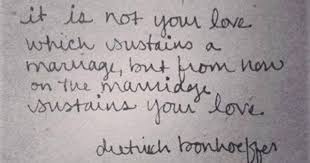 it is not your love
which sustains a
marriage, but from now
on the marriage
sustains your love.
dietrich bonhoeffer